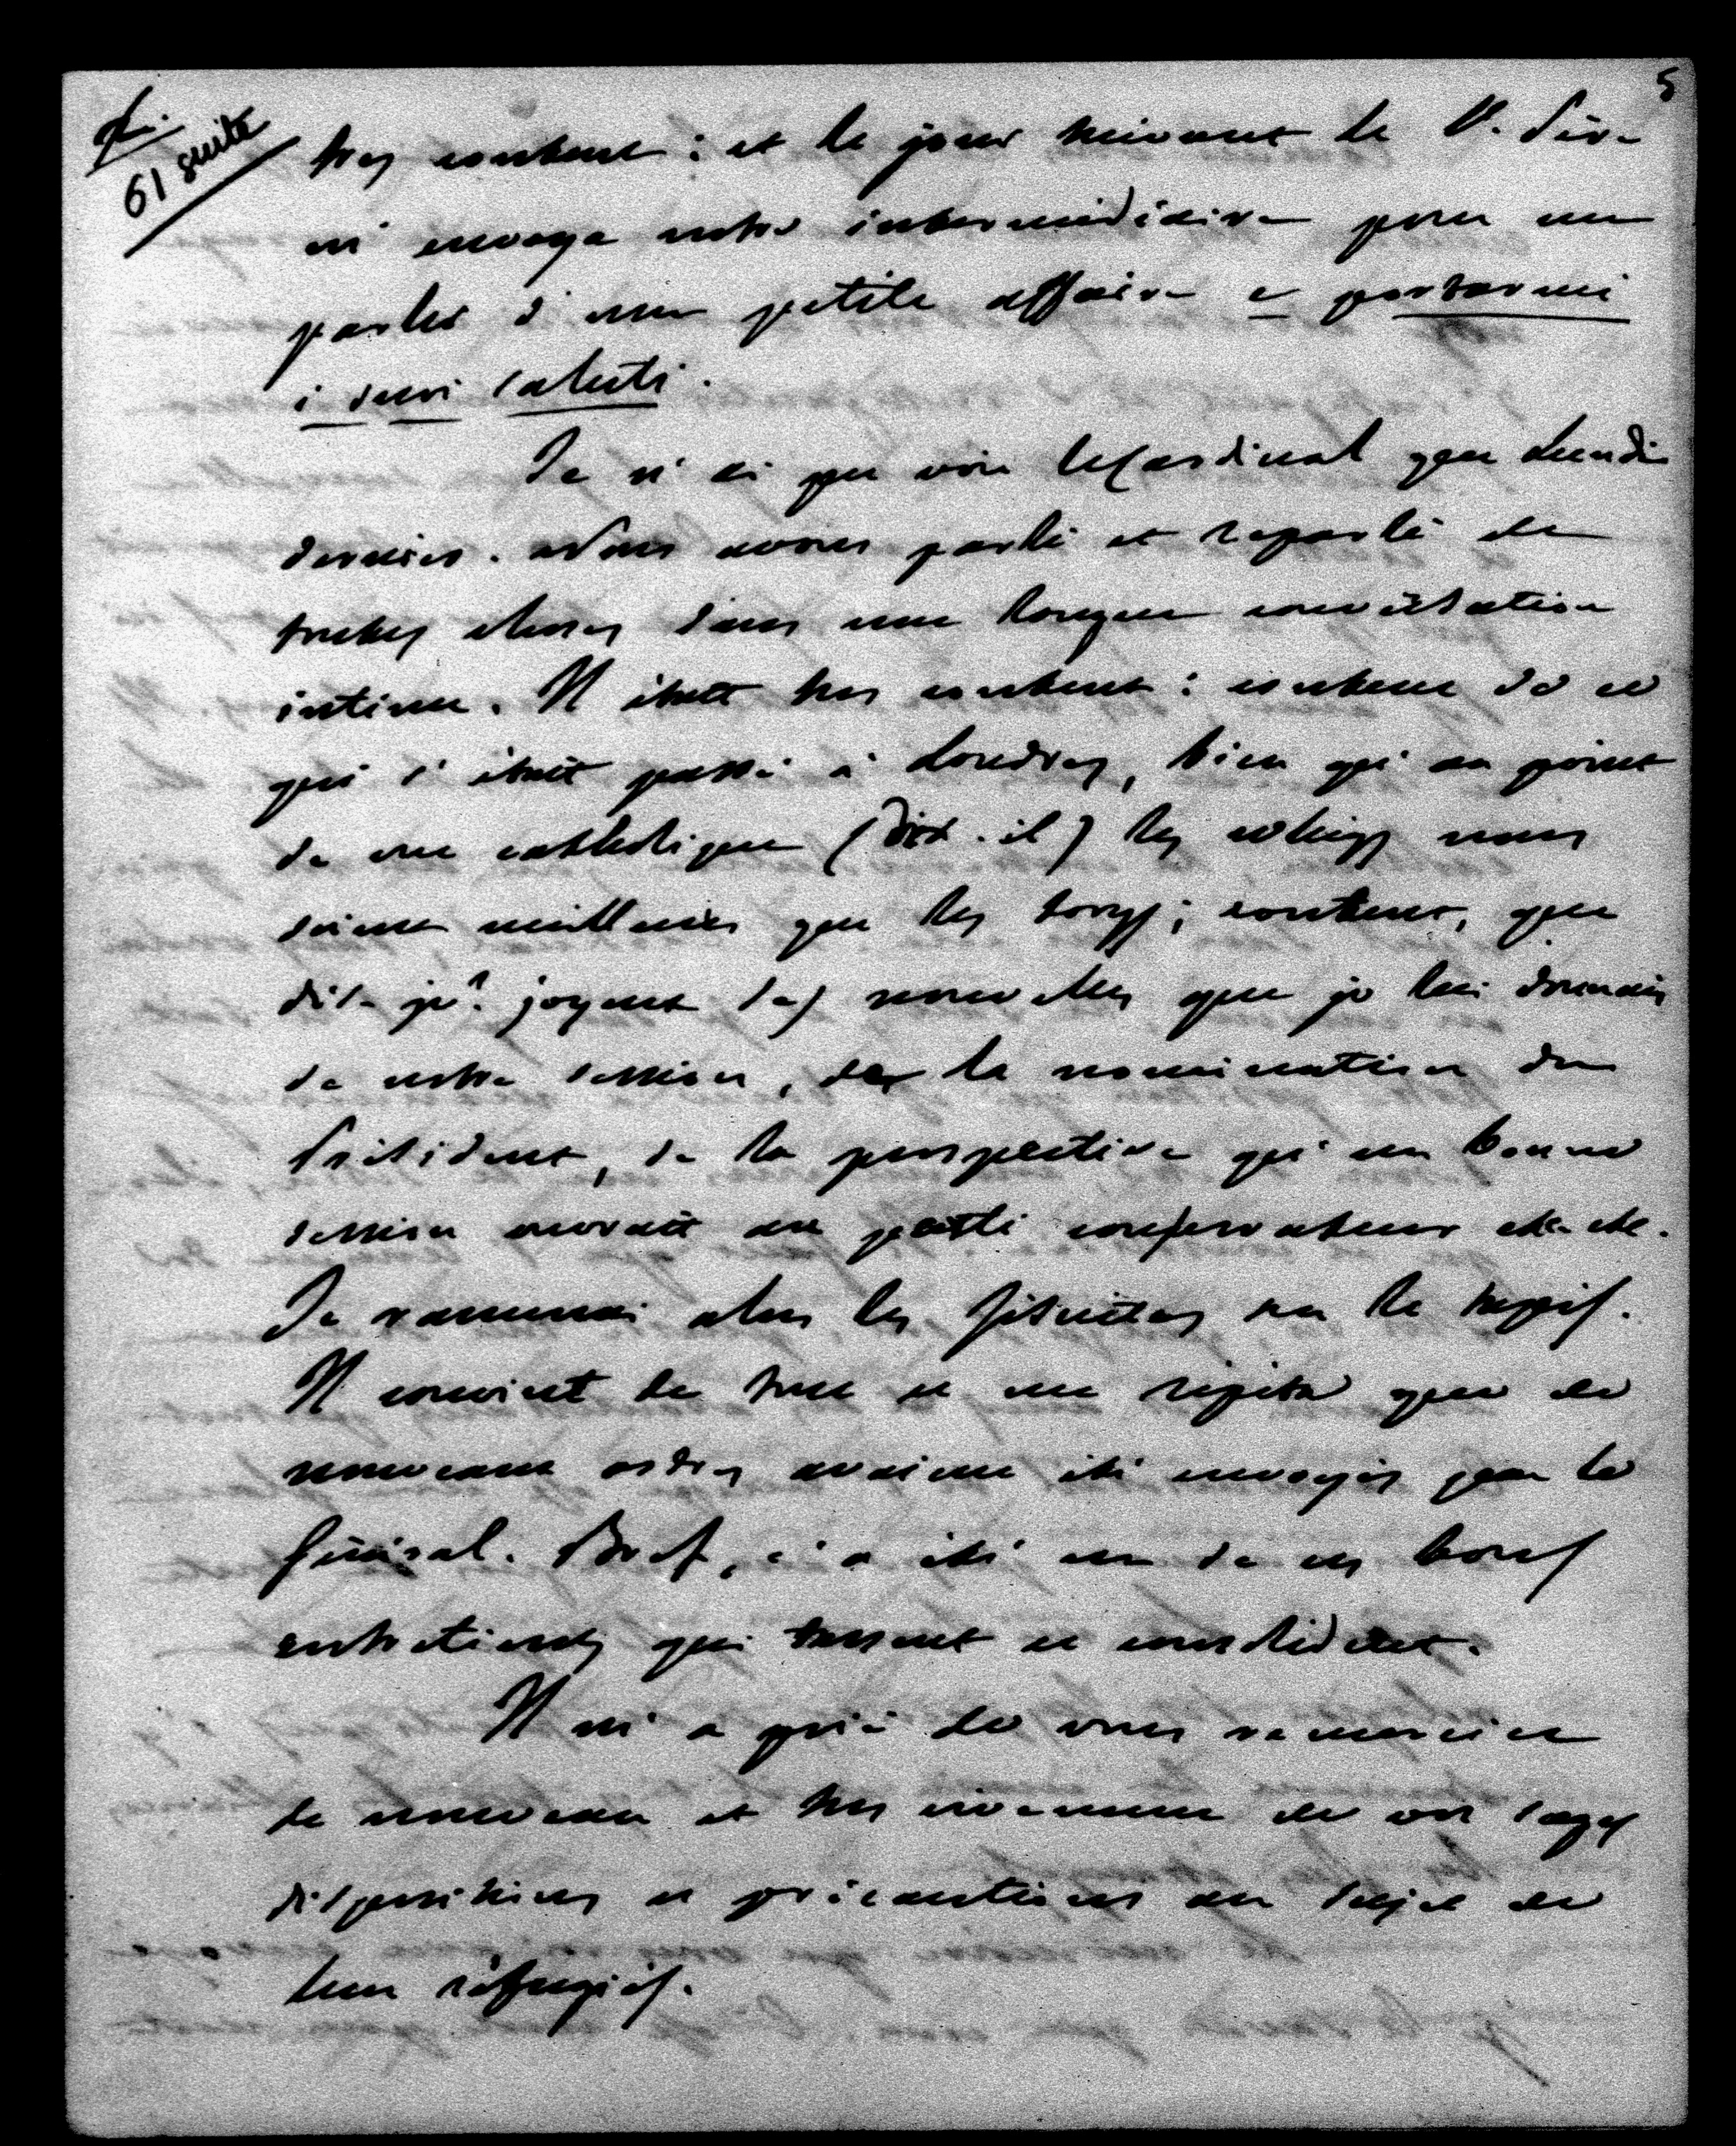 5
P.
61 suite
très content : et le jour suivant le S. Père
m'envoya notre intermédiaire pour me
parler d'une petite affaire e portarmi
i suoi saluti.
Je n'ai pu voir le Cardinal que Lundi
dernier. Nous avons parlé et reparlé de
toutes choses dans une longue conversation
intime. Il était très content : content de ce
qui s'était passé à Londres, bien qu'au point
de vue catholique (dit-il) les whigs nous
soient meilleurs que les torys ; content, que
dis-je ? joyeux des nouvelles que je lui donnais
de notre session, de la nomination du
Président, de la perspective qu'une bonne
session ouvrait au parti conservateur etc. etc.
Je ramenai alors les Jésuites sur le tapis.
Il convint de tout et me répéta que de
nouveaux ordres avaient été envoyés par le
Général. Bref, ç'a été un de ces bons
entretiens qui tassent et consolident.
Il m'a prié de vous remercier
de nouveau et très vivement de vos sages
dispositions et précautions au sujet de
leurs réfugiés.